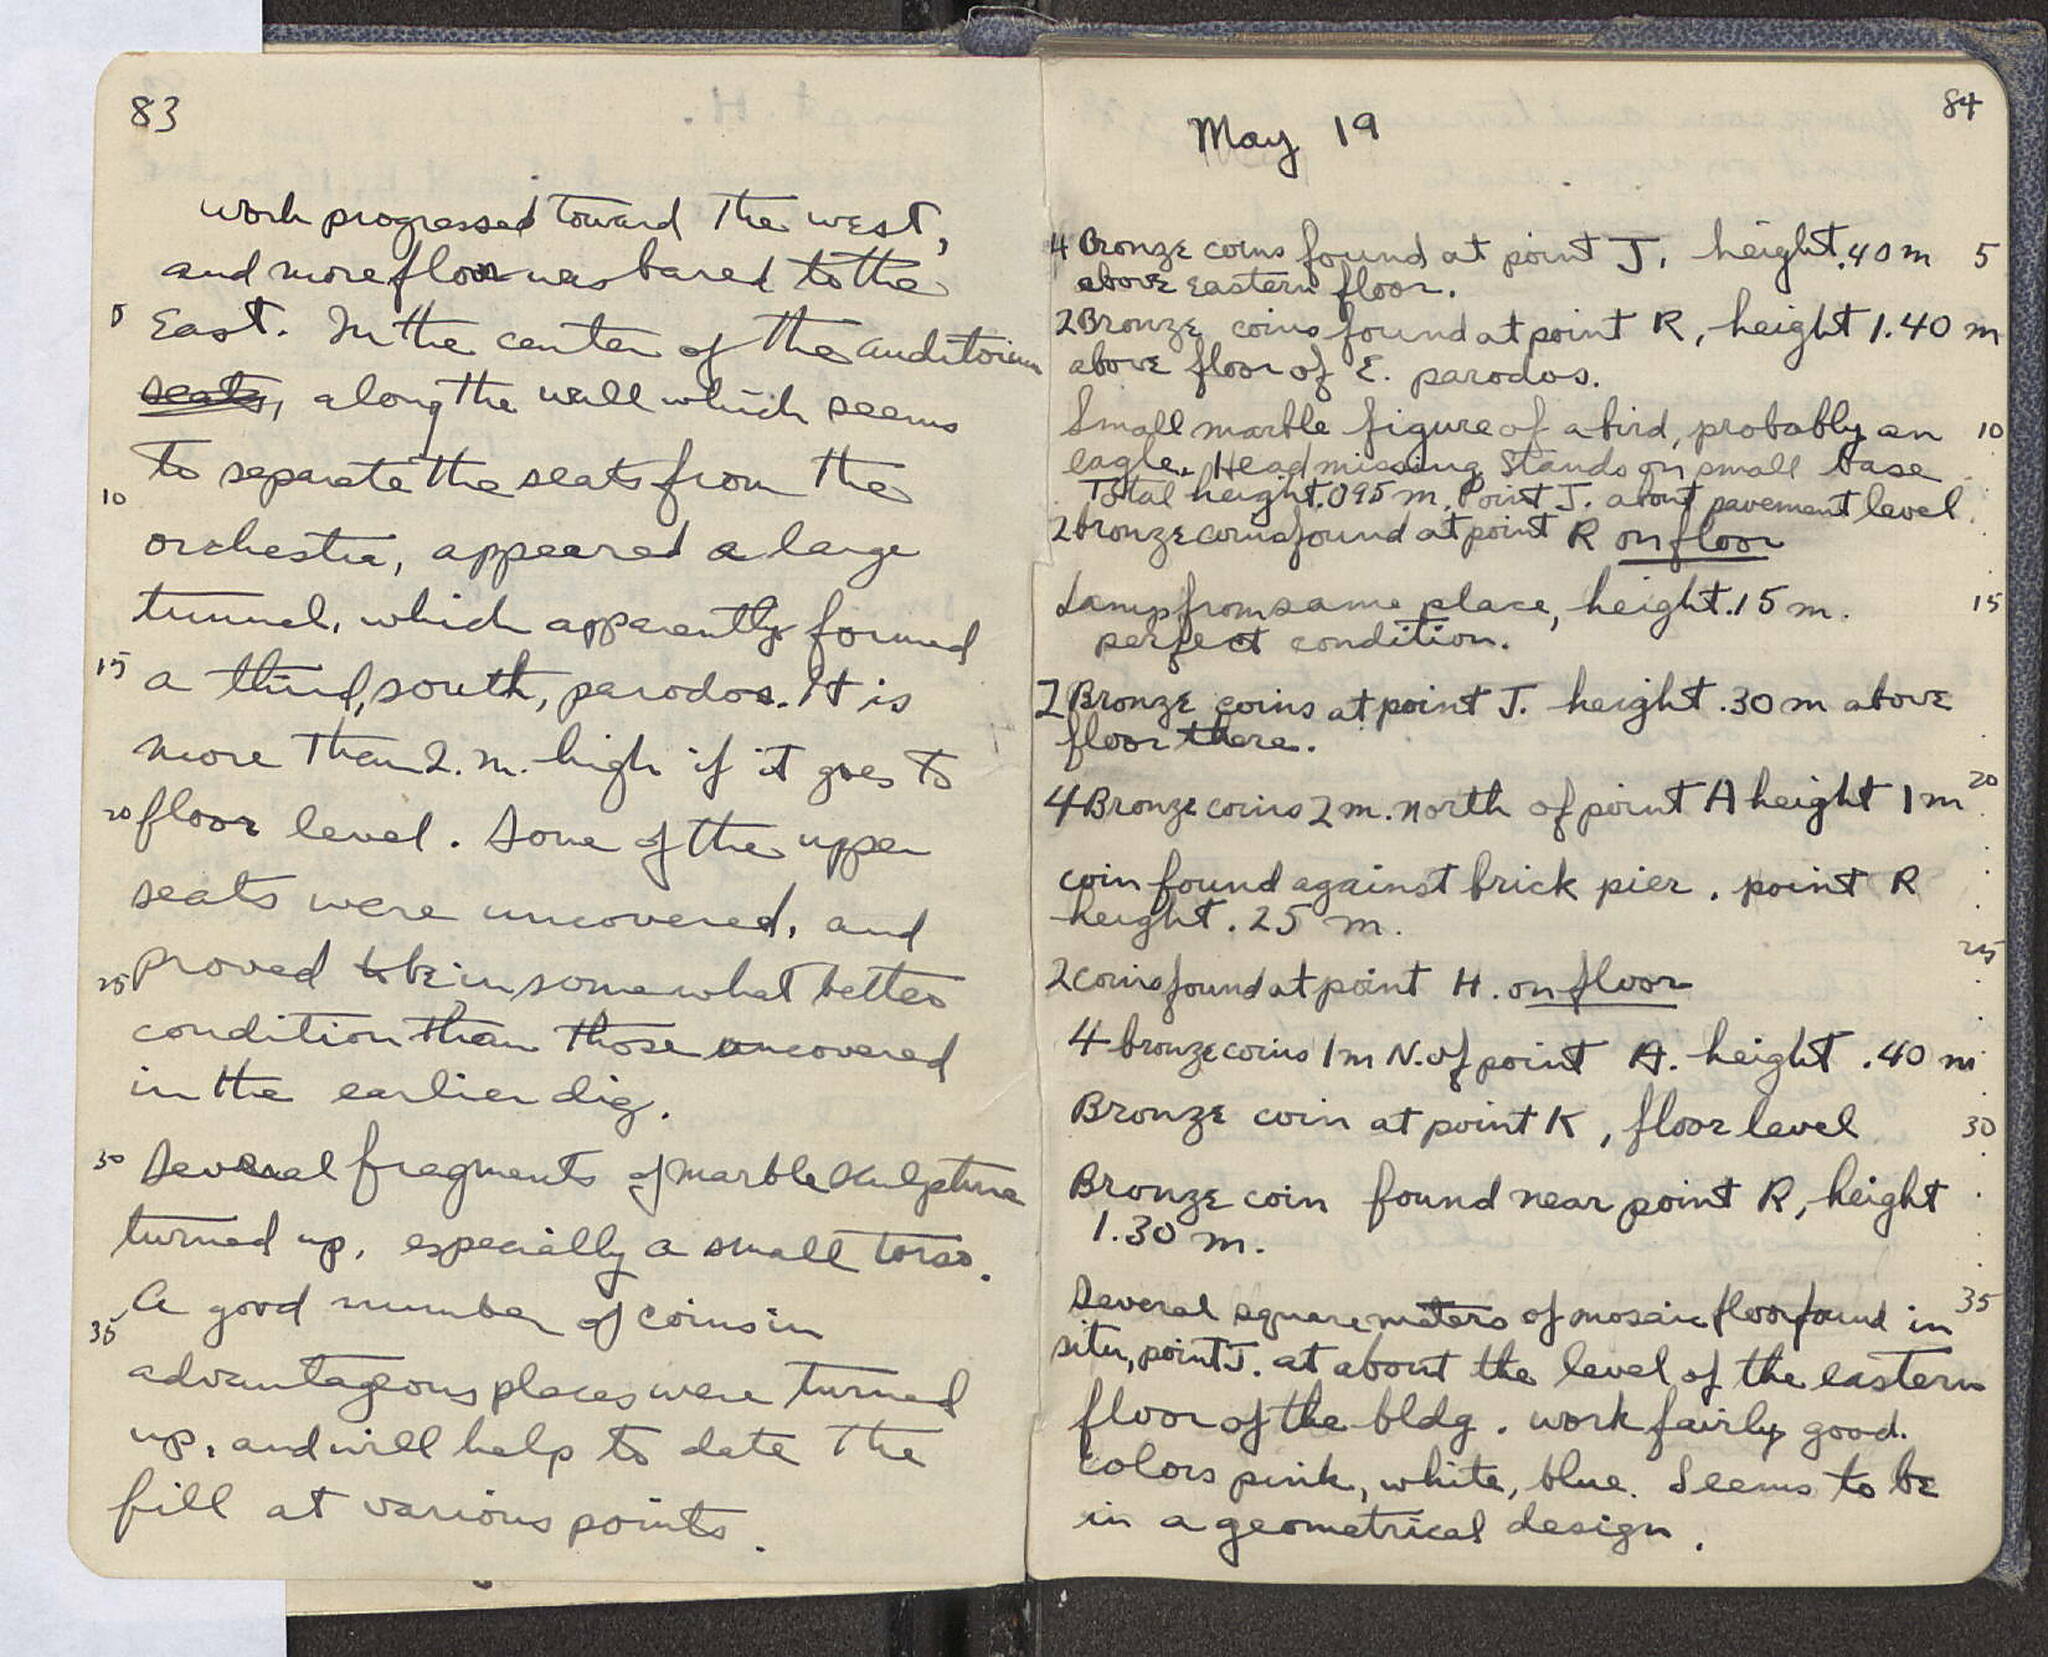 83
work progressed toward the west,
and more floor was bared to the
5 East. In the center of the auditorium
seats, along the wall which seems
to separate the seats from the
10
orchestra, appeared a large
tunnel, which apparently formed
15 a third, south, parodos. It is
more than 2. m. high if it goes to
20 floor level. Some of the upper
seats were uncovered, and
25 proved to be in somewhat better
condition than those uncovered
in the earlier dig.
30 Several fragments of marble sculpture
turned up, especially a small torso.
A good number of coins in
35
advantageous places were turned
up, and will help to date the
fill at various points.
84
May 19
4 Bronze coins found at point J, height .40 m 5
above eastern floor.
2 Bronze coins found at point R, height 1.40 m
above floor of E. parodos.
Small marble figure of a bird, probably an 10
eagle. Head missing. Stands on small base
Total height .095 m. Point J. about pavement level.
2 bronze coins found at point R on floor
Lamp from same place, height .15 m. 15
perfect condition.
2 Bronze coins at point J. height .30 m above
floor there.
4 Bronze coins 2 m. north of point A height 1 m 20
coin found against brick pier. point R
height .25 m.
25
2 coins found at point H. on floor
4 bronze coins 1 m N. of point A. height .40 m
Bronze coin at point K, floor level 30
Bronze coin found near point R, height
1.30 m.
Several square meters of mosaic floor found in 35
situ, point J. at about the level of the eastern
floor of the bldg. work fairly good.
colors pink, white, blue. Seems to be
in a geometrical design.